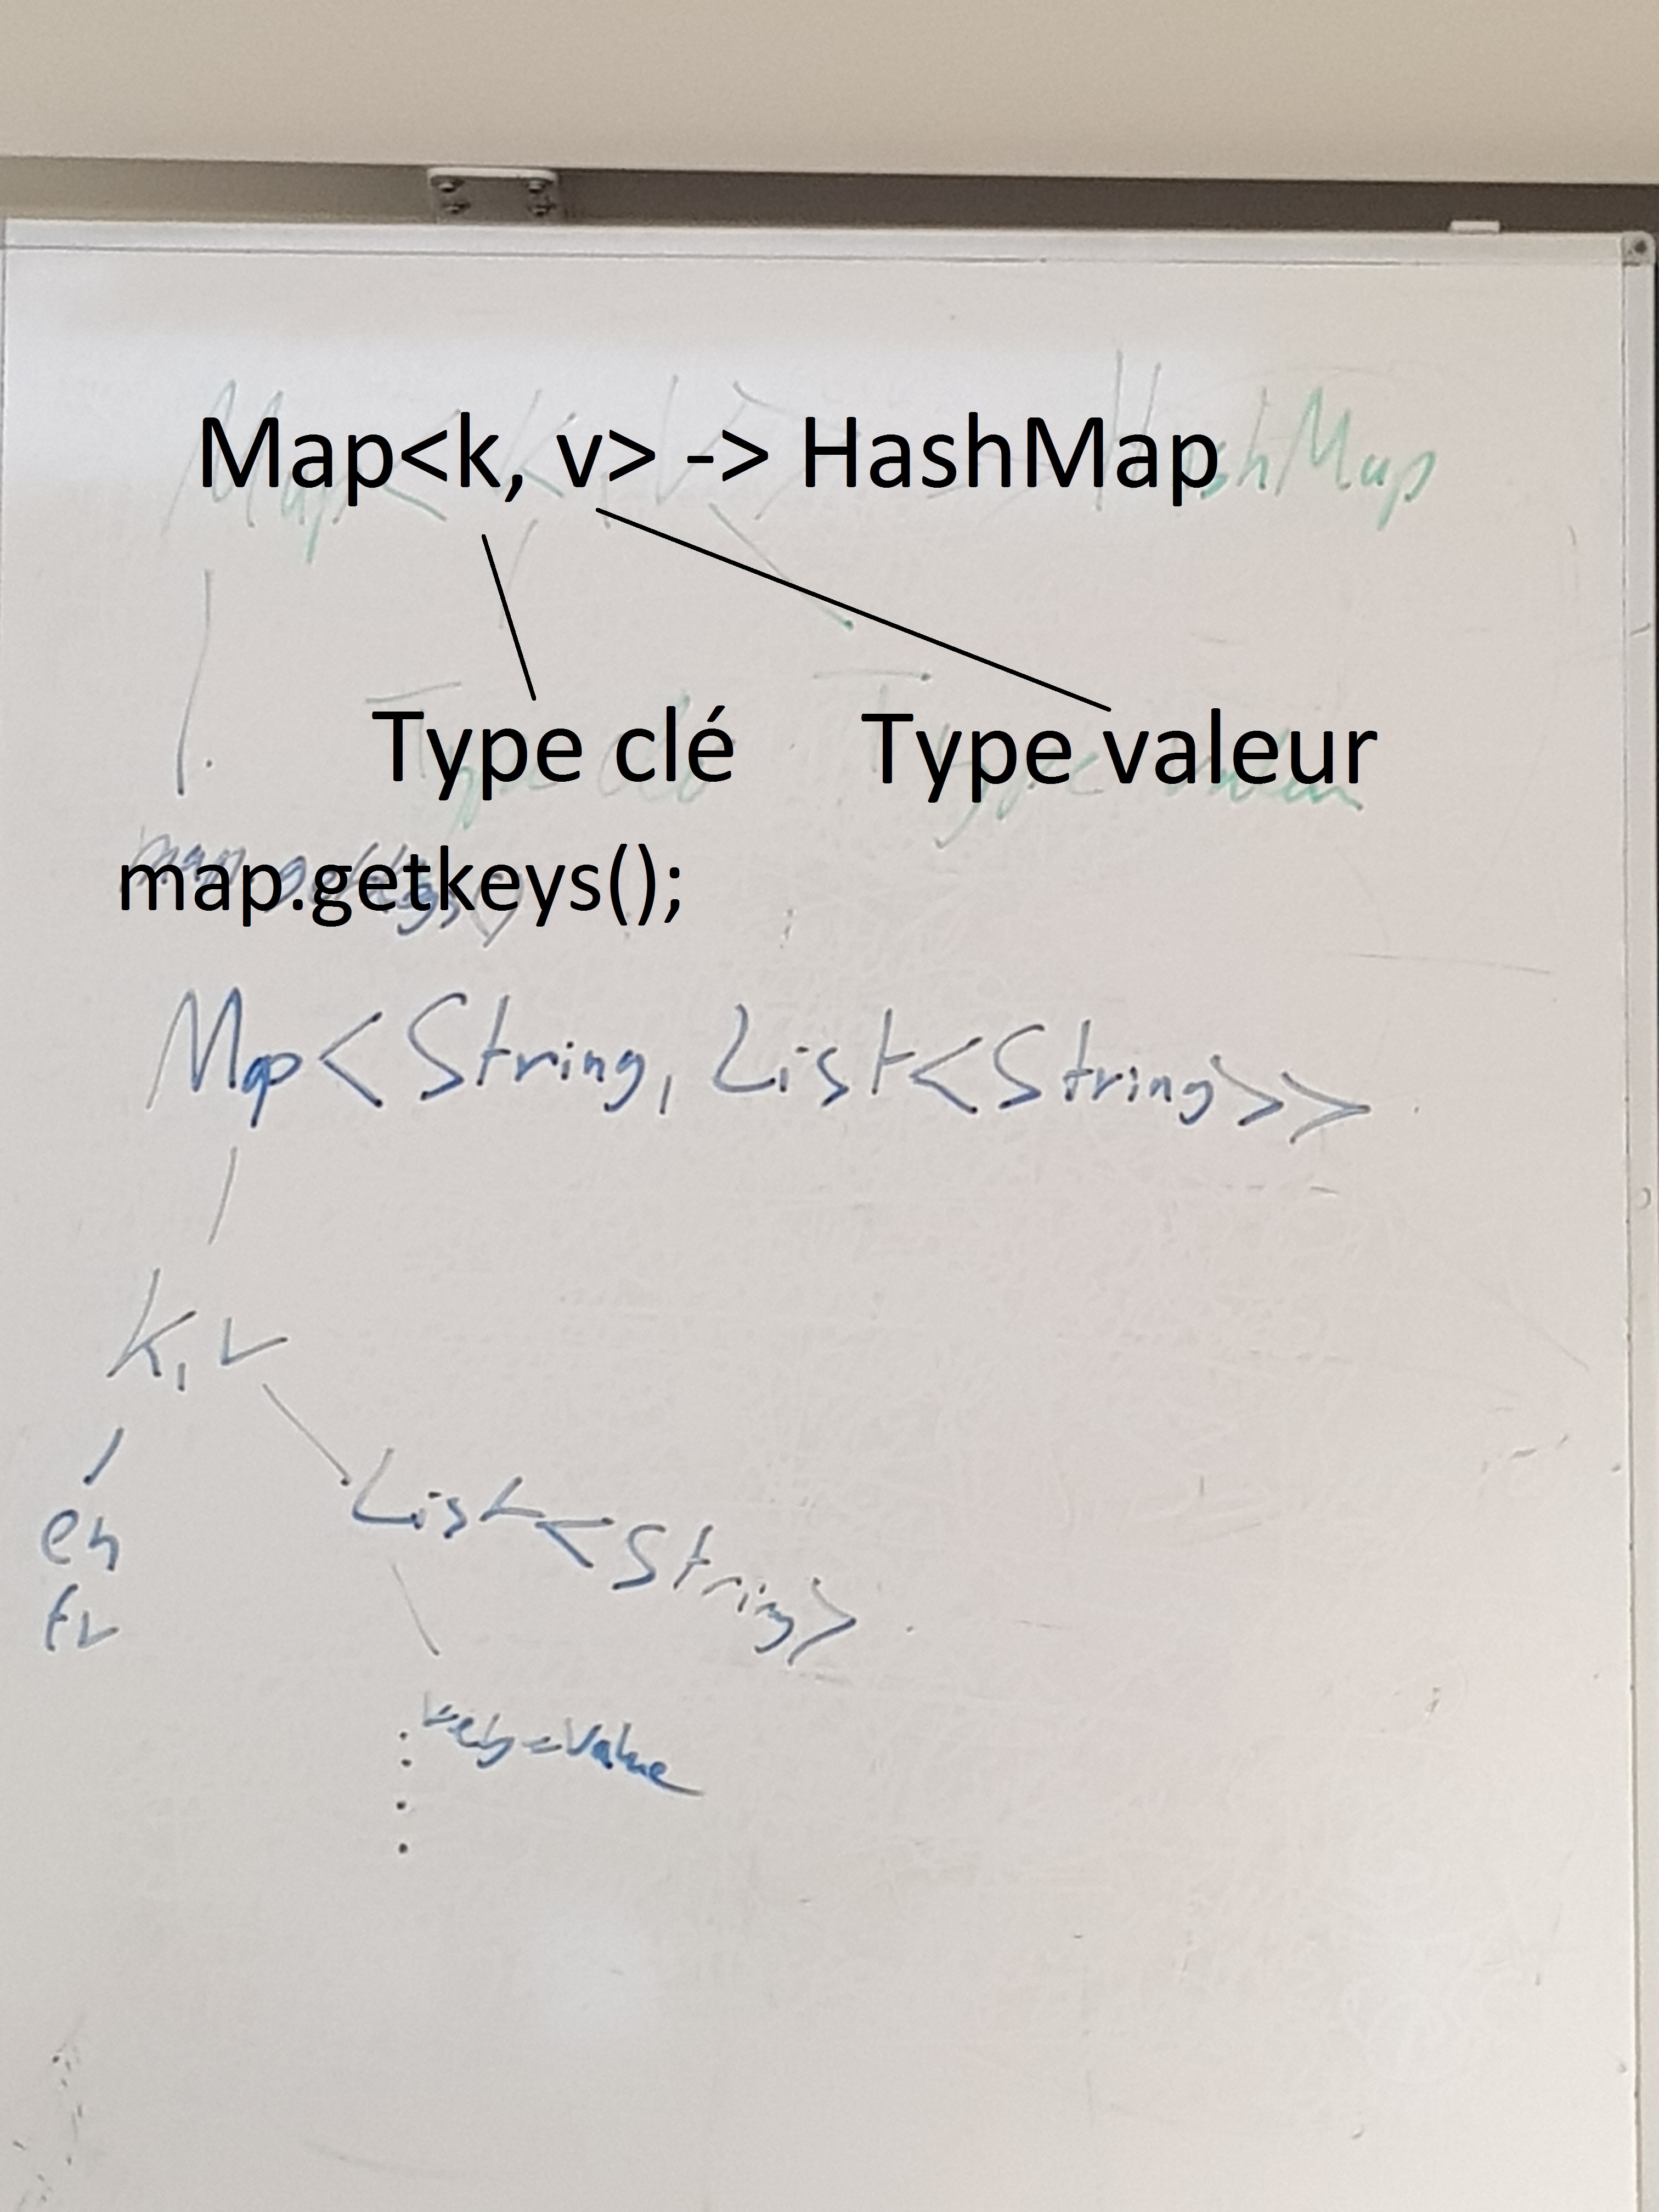 Map<k, v> -> HashMap
Type clé Type valeur
map.getkeys();
Map<String, List<String>>
k, v
en
fr
List<String>
key=value